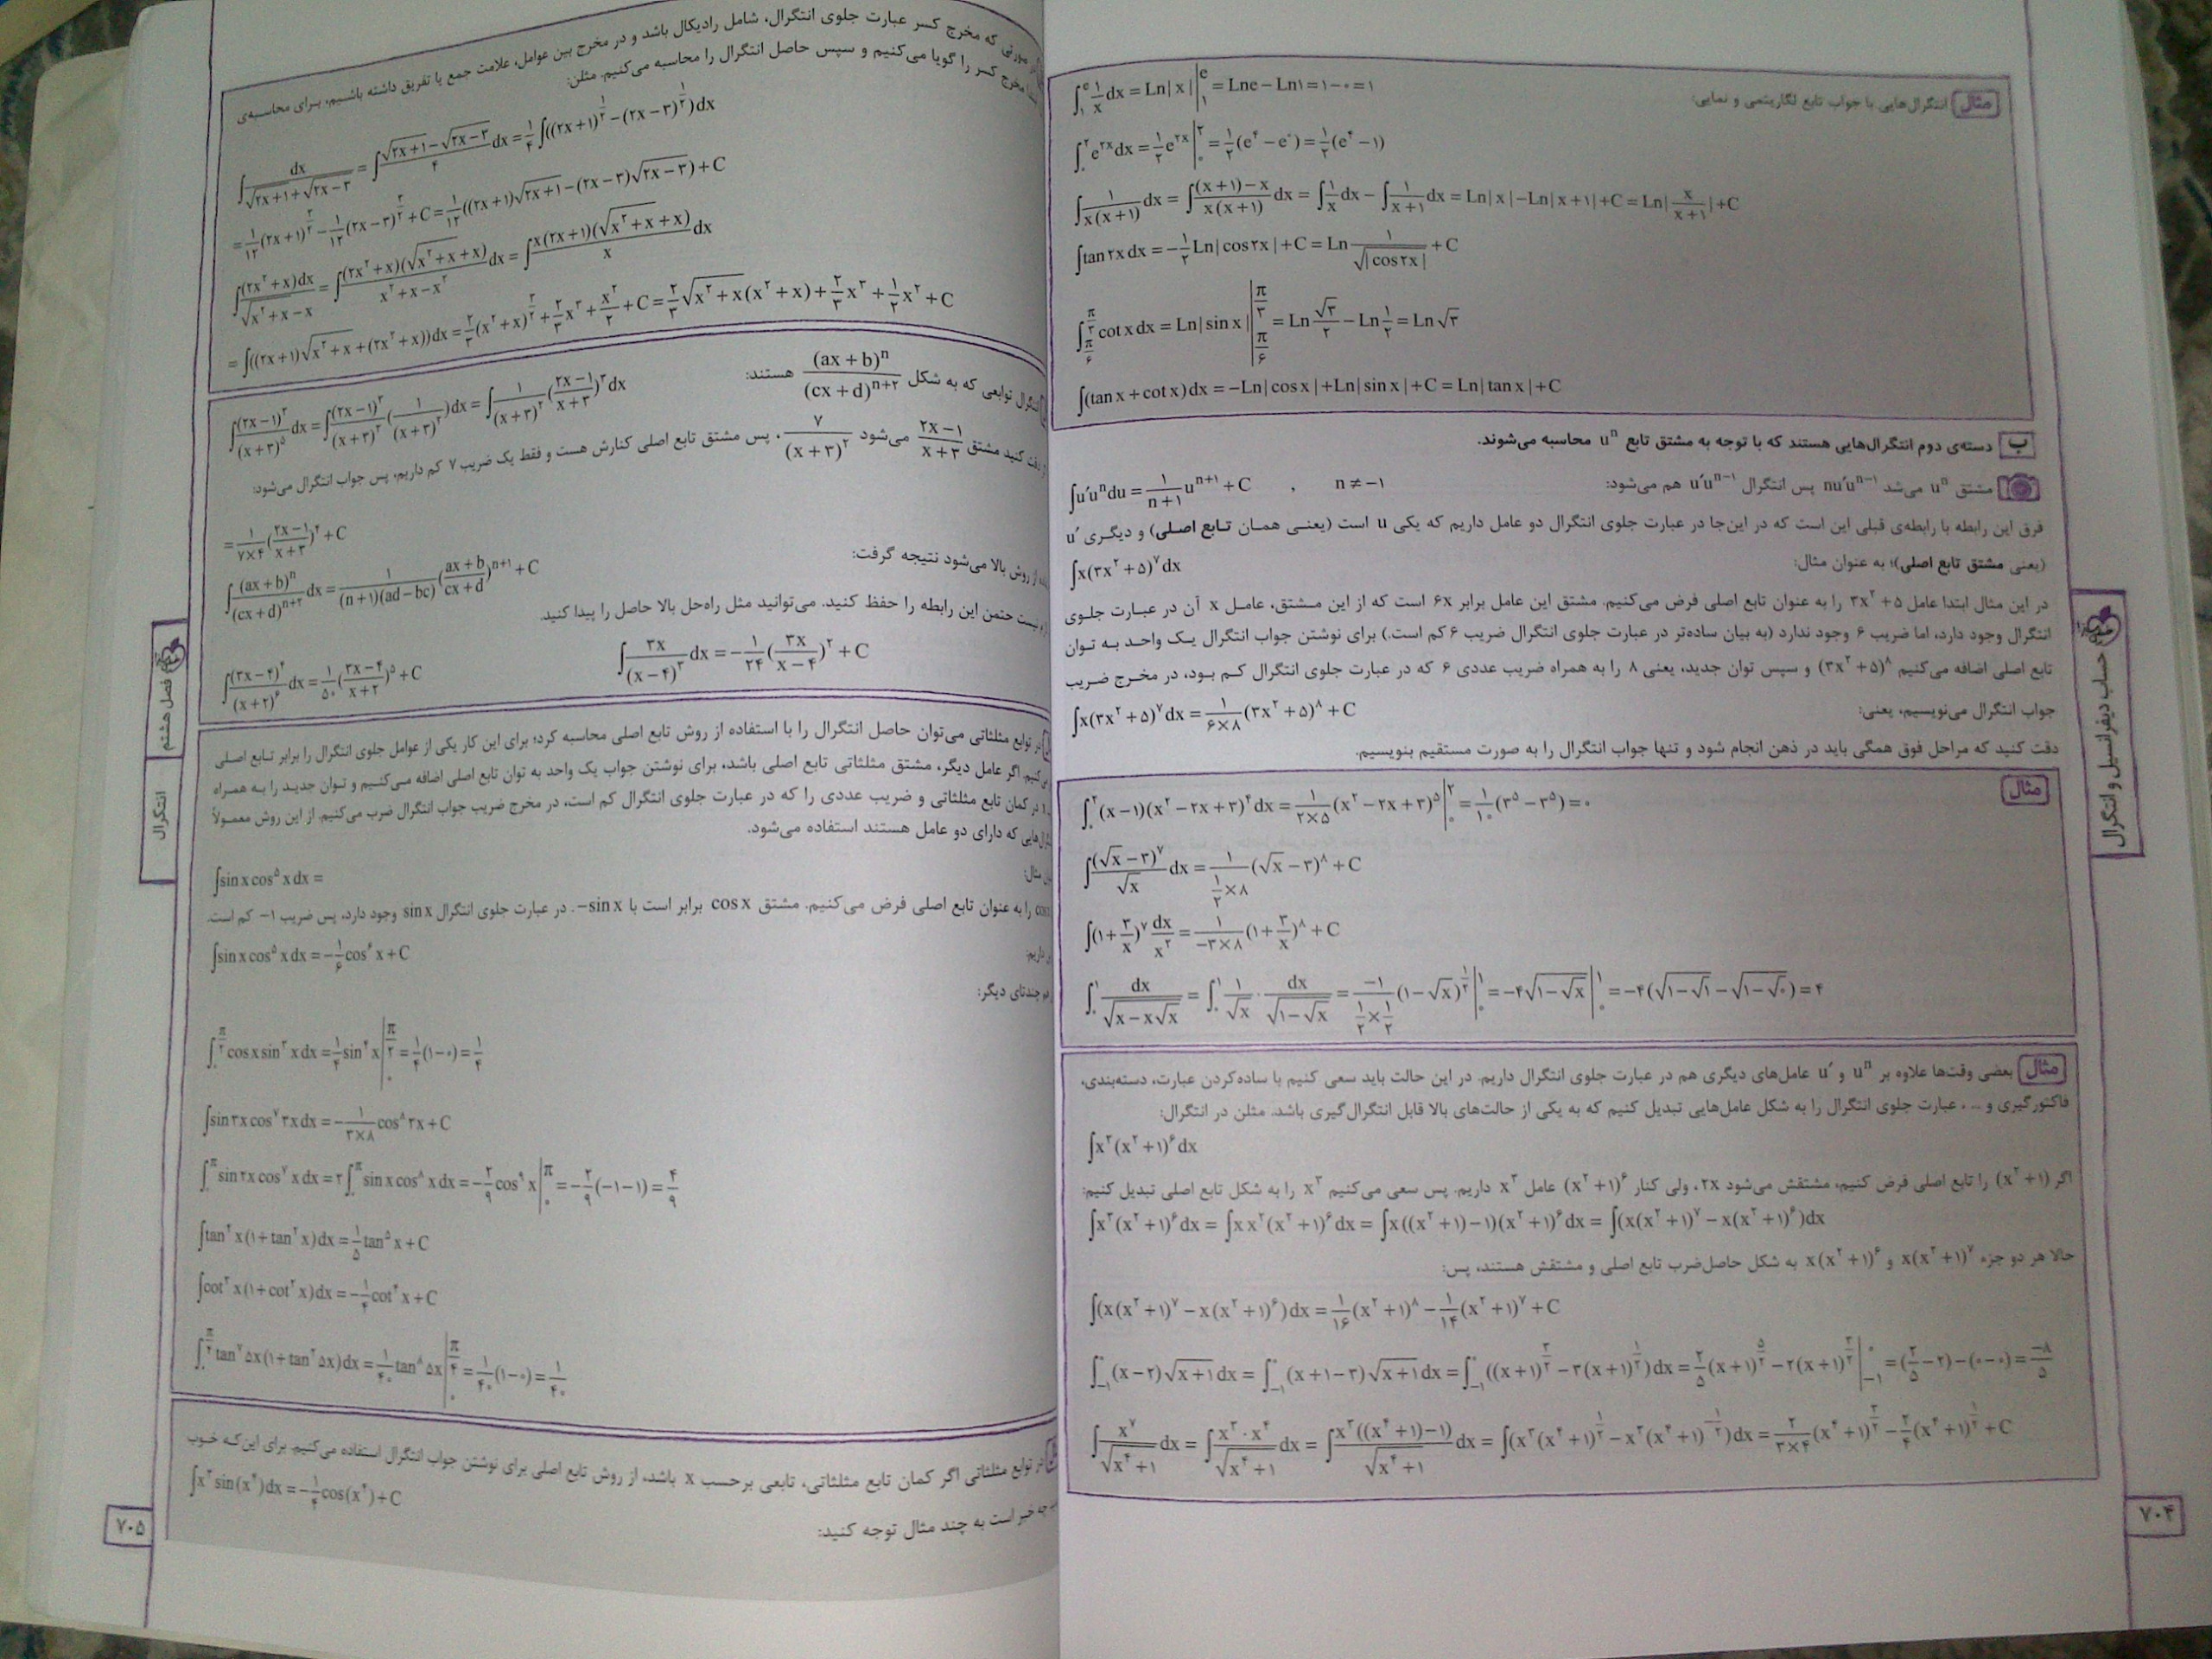 مثال انتگرال‌هایی با جواب تابع لگاریتمی و نمایی:
∫₁^e ۱/x dx = Ln|x| |₁^e = Lne − Ln۱ = ۱ − ۰ = ۱
∫₀^۲ e^(۲x) dx = ۱/۲ e^(۲x) |₀^۲ = ۱/۲ (e^۴ − e^۰) = ۱/۲ (e^۴ − ۱)
∫ ۱/(x(x+۱)) dx = ∫ ((x+۱)−x)/(x(x+۱)) dx = ∫ ۱/x dx − ∫ ۱/(x+۱) dx = Ln|x| − Ln|x+۱| + C = Ln|x/(x+۱)| + C
∫ tan ۲x dx = −۱/۲ Ln|cos ۲x| + C = Ln ۱/√|cos ۲x| + C
∫_(π/۶)^(π/۳) cot x dx = Ln|sin x| |_(π/۶)^(π/۳) = Ln √۳/۲ − Ln ۱/۲ = Ln √۳
∫(tan x + cot x) dx = −Ln|cos x| + Ln|sin x| + C = Ln|tan x| + C
ب دسته‌ی دوم انتگرال‌هایی هستند که با توجه به مشتق تابع uⁿ محاسبه می‌شوند.
مشتق uⁿ می‌شد nu′u^(n−۱) پس انتگرال u′u^(n−۱) هم می‌شود: ∫u′uⁿdu = ۱/(n+۱) u^(n+۱) + C , n ≠ −۱
فرق این رابطه با رابطه‌ی قبلی این است که در این‌جا در عبارت جلوی انتگرال دو عامل داریم که یکی u است (یعنی همان تابع اصلی) و دیگری u′
(یعنی مشتق تابع اصلی)؛ به عنوان مثال: ∫x(۳x^۲ + ۵)^۷ dx
در این مثال ابتدا عامل ۳x^۲ + ۵ را به عنوان تابع اصلی فرض می‌کنیم. مشتق این عامل برابر ۶x است که از این مشتق، عامل x آن در عبارت جلوی
انتگرال وجود دارد، اما ضریب ۶ وجود ندارد (به بیان ساده‌تر در عبارت جلوی انتگرال ضریب ۶ کم است.) برای نوشتن جواب انتگرال یک واحد به توان
تابع اصلی اضافه می‌کنیم (۳x^۲ + ۵)^۸ و سپس توان جدید، یعنی ۸ را به همراه ضریب عددی ۶ که در عبارت جلوی انتگرال کم بود، در مخرج ضریب
جواب انتگرال می‌نویسیم، یعنی: ∫x(۳x^۲ + ۵)^۷ dx = ۱/(۶×۸) (۳x^۲ + ۵)^۸ + C
دقت کنید که مراحل فوق همگی باید در ذهن انجام شود و تنها جواب انتگرال را به صورت مستقیم بنویسیم.
مثال
∫₀^۲ (x−۱)(x^۲ − ۲x + ۳)^۴ dx = ۱/(۲×۵) (x^۲ − ۲x + ۳)^۵ |₀^۲ = ۱/۱۰ (۳^۵ − ۳^۵) = ۰
∫ (√x − ۳)^۷/√x dx = ۱/(۱/۲ × ۸) (√x − ۳)^۸ + C
∫(۱ + ۳/x)^۷ dx/x^۲ = ۱/(−۳×۸) (۱ + ۳/x)^۸ + C
∫₀^۱ dx/√(x − x√x) = ∫₀^۱ ۱/√x · dx/√(۱−√x) = −۱/(۱/۲ × ۱/۲) (۱−√x)^(۱/۲) |₀^۱ = −۴√(۱−√x) |₀^۱ = −۴(√(۱−√۱) − √(۱−√۰)) = ۴
مثال بعضی وقت‌ها علاوه بر uⁿ و u′ عامل‌های دیگری هم در عبارت جلوی انتگرال داریم. در این حالت باید سعی کنیم با ساده‌کردن عبارت، دسته‌بندی،
فاکتورگیری و ... ، عبارت جلوی انتگرال را به شکل عامل‌هایی تبدیل کنیم که به یکی از حالت‌های بالا قابل انتگرال‌گیری باشد. مثلن در انتگرال:
∫x^۳(x^۲ + ۱)^۶ dx
اگر (x^۲ + ۱) را تابع اصلی فرض کنیم، مشتقش می‌شود ۲x، ولی کنار (x^۲ + ۱)^۶ عامل x^۳ داریم. پس سعی می‌کنیم x^۳ را به شکل تابع اصلی تبدیل کنیم:
∫x^۳(x^۲ + ۱)^۶ dx = ∫x x^۲(x^۲ + ۱)^۶ dx = ∫x((x^۲ + ۱) − ۱)(x^۲ + ۱)^۶ dx = ∫(x(x^۲ + ۱)^۷ − x(x^۲ + ۱)^۶)dx
حالا هر دو جزء x(x^۲ + ۱)^۷ و x(x^۲ + ۱)^۶ به شکل حاصل‌ضرب تابع اصلی و مشتقش هستند، پس:
∫(x(x^۲ + ۱)^۷ − x(x^۲ + ۱)^۶)dx = ۱/۱۶ (x^۲ + ۱)^۸ − ۱/۱۴ (x^۲ + ۱)^۷ + C
∫₋₁^۰ (x−۲)√(x+۱) dx = ∫₋₁^۰ (x+۱−۳)√(x+۱) dx = ∫₋₁^۰ ((x+۱)^(۳/۲) − ۳(x+۱)^(۱/۲)) dx = ۲/۵ (x+۱)^(۵/۲) − ۲(x+۱)^(۳/۲) |₋₁^۰ = (۲/۵ − ۲) − (۰−۰) = −۸/۵
∫ x^۷/√(x^۴+۱) dx = ∫ x^۳·x^۴/√(x^۴+۱) dx = ∫ x^۳((x^۴+۱)−۱)/√(x^۴+۱) dx = ∫(x^۳(x^۴+۱)^(۱/۲) − x^۳(x^۴+۱)^(−۱/۲))dx = ۲/(۳×۴) (x^۴+۱)^(۳/۲) − ۲/۴ (x^۴+۱)^(۱/۲) + C
حساب دیفرانسیل و انتگرال
۷۰۴
صورتی که مخرج کسر عبارت جلوی انتگرال، شامل رادیکال باشد و در مخرج بین عوامل، علامت جمع یا تفریق داشته باشیم، برای محاسبه‌ی
مخرج کسر را گویا می‌کنیم و سپس حاصل انتگرال را محاسبه می‌کنیم. مثلن:
∫ dx/(√(۲x+۱) + √(۲x−۳)) = ∫ (√(۲x+۱) − √(۲x−۳))/۴ dx = ۱/۴ ∫((۲x+۱)^(۱/۲) − (۲x−۳)^(۱/۲))dx
= ۱/۱۲ (۲x+۱)^(۳/۲) − ۱/۱۲ (۲x−۳)^(۳/۲) + C = ۱/۱۲ ((۲x+۱)√(۲x+۱) − (۲x−۳)√(۲x−۳)) + C
∫ (۲x^۲+x)dx/(√(x^۲+x) − x) = ∫ (۲x^۲+x)(√(x^۲+x) + x)/(x^۲+x−x^۲) dx = ∫ x(۲x+۱)(√(x^۲+x) + x)/x dx
= ∫((۲x+۱)√(x^۲+x) + (۲x^۲+x))dx = ۲/۳ (x^۲+x)^(۳/۲) + ۲/۳ x^۳ + x^۲/۲ + C = ۲/۳ √(x^۲+x)(x^۲+x) + ۲/۳ x^۳ + ۱/۲ x^۲ + C
انتگرال توابعی که به شکل (ax+b)ⁿ/(cx+d)^(n+۲) هستند:
∫ (۲x−۱)^۳/(x+۳)^۵ dx = ∫ (۲x−۱)^۳/(x+۳)^۳ (۱/(x+۳)^۲)dx = ∫ ۱/(x+۳)^۲ ((۲x−۱)/(x+۳))^۳ dx
دقت کنید مشتق (۲x−۱)/(x+۳) می‌شود ۷/(x+۳)^۲، پس مشتق تابع اصلی کنارش هست و فقط یک ضریب ۷ کم داریم، پس جواب انتگرال می‌شود:
= ۱/(۷×۴) ((۲x−۱)/(x+۳))^۴ + C
از روش بالا می‌شود نتیجه گرفت:
∫ (ax+b)ⁿ/(cx+d)^(n+۲) dx = ۱/((n+۱)(ad−bc)) ((ax+b)/(cx+d))^(n+۱) + C
نیست حتمن این رابطه را حفظ کنید. می‌توانید مثل راه‌حل بالا حاصل را پیدا کنید.
∫ (۳x−۴)^۴/(x+۲)^۶ dx = ۱/۵۰ ((۳x−۴)/(x+۲))^۵ + C ∫ ۳x/(x−۴)^۳ dx = −۱/۲۴ (۳x/(x−۴))^۲ + C
در توابع مثلثاتی می‌توان حاصل انتگرال را با استفاده از روش تابع اصلی محاسبه کرد؛ برای این کار یکی از عوامل جلوی انتگرال را برابر تابع اصلی
می‌کنیم. اگر عامل دیگر، مشتق مثلثاتی تابع اصلی باشد، برای نوشتن جواب یک واحد به توان تابع اصلی اضافه می‌کنیم و توان جدید را به همراه
در کمان تابع مثلثاتی و ضریب عددی را که در عبارت جلوی انتگرال کم است، در مخرج ضریب جواب انتگرال ضرب می‌کنیم. از این روش معمولاً
که دارای دو عامل هستند استفاده می‌شود.
مثال: ∫sin x cos^۵ x dx =
cos x را به عنوان تابع اصلی فرض می‌کنیم. مشتق cos x برابر است با −sin x. در عبارت جلوی انتگرال sin x وجود دارد، پس ضریب −۱ کم است.
داریم: ∫sin x cos^۵ x dx = −۱/۶ cos^۶ x + C
چندتای دیگر:
∫₀^(π/۲) cos x sin^۳ x dx = ۱/۴ sin^۴ x |₀^(π/۲) = ۱/۴ (۱−۰) = ۱/۴
∫sin ۳x cos^۷ ۳x dx = −۱/(۳×۸) cos^۸ ۳x + C
∫₀^π sin ۲x cos^۷ x dx = ۲∫₀^π sin x cos^۸ x dx = −۲/۹ cos^۹ x |₀^π = −۲/۹ (−۱−۱) = ۴/۹
∫tan^۴ x(۱+tan^۲ x)dx = ۱/۵ tan^۵ x + C
∫cot^۳ x(۱+cot^۲ x)dx = −۱/۴ cot^۴ x + C
tan^۷ ۵x(۱+tan^۲ ۵x)dx = ۱/۴۰ tan^۸ ۵x = ۱/۴۰ (۱−۰) = ۱/۴۰
در توابع مثلثاتی اگر کمان تابع مثلثاتی، تابعی برحسب x باشد، از روش تابع اصلی برای نوشتن جواب انتگرال استفاده می‌کنیم. برای این‌که خوب
چه خبر است به چند مثال توجه کنید: ∫x^۳ sin(x^۴)dx = −۱/۴ cos(x^۴) + C
فصل هشتم
انتگرال
۷۰۵